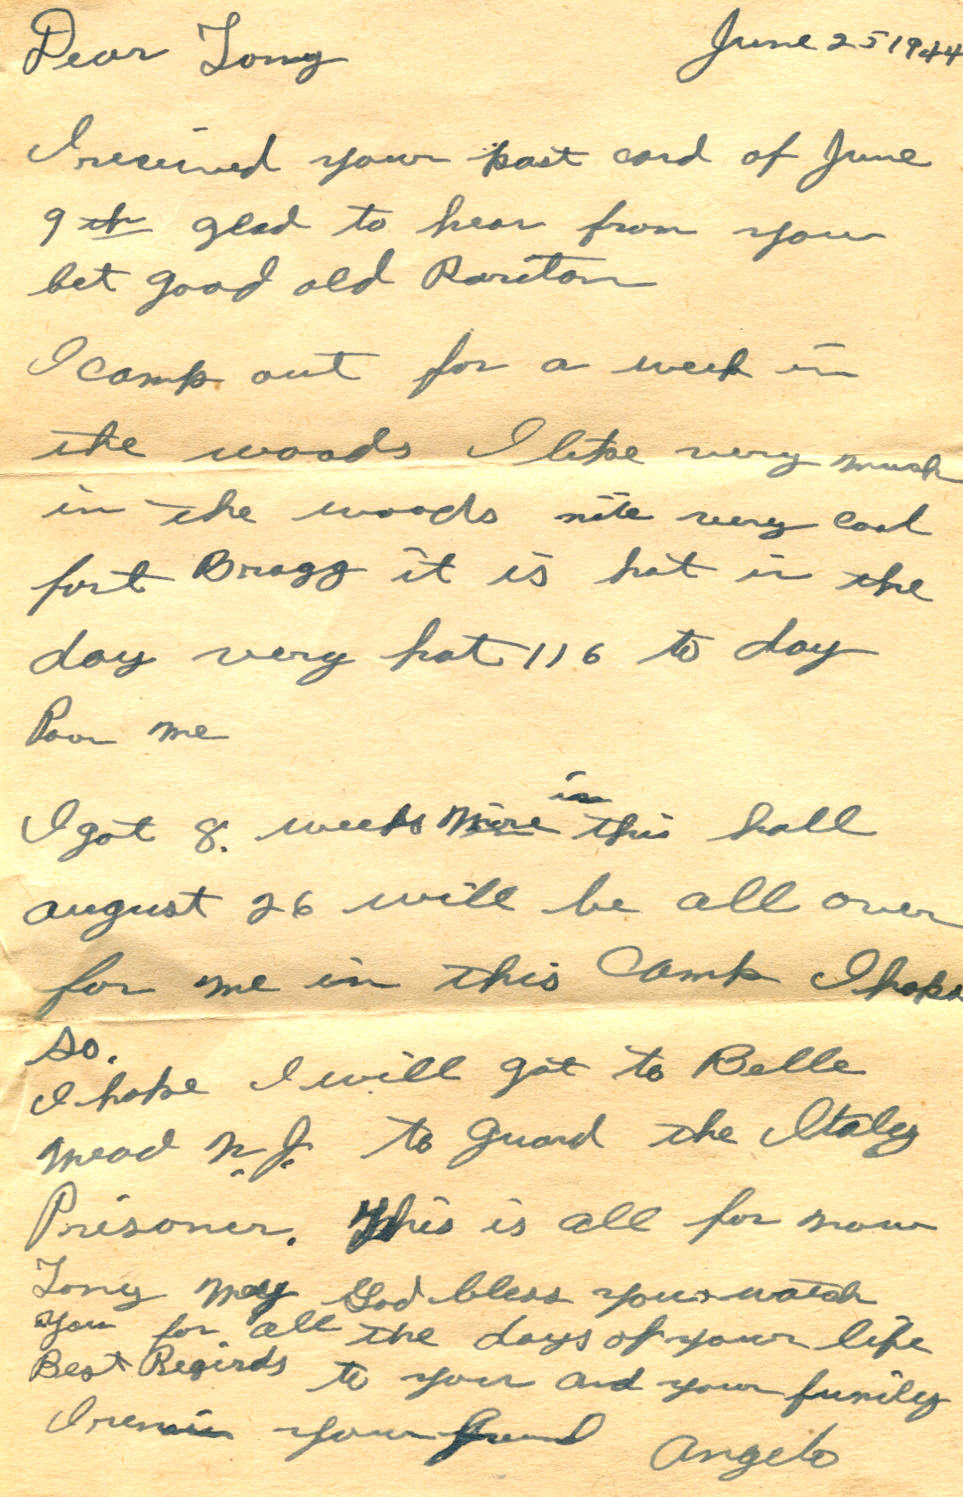 Dear Tony June 25 1944
I received your post card of June
9th glad to hear from you
bet good old Raritan
I camp out for a week in
the woods I like very much
in the woods nite very cool
fort Bragg it is hot in the
day very hot 116 to day
Poor me
I got 8. weeks more in this hell
august 26 will be all over
for me in this Camp I hope
so.
I hope I will got to Belle
mead N.J. to guard the Italy
Prisoner. This is all for now
Tony may God bless you watch
you for all the days of your life
Best Regirds to your and your fumily
I remain your friend Angelo